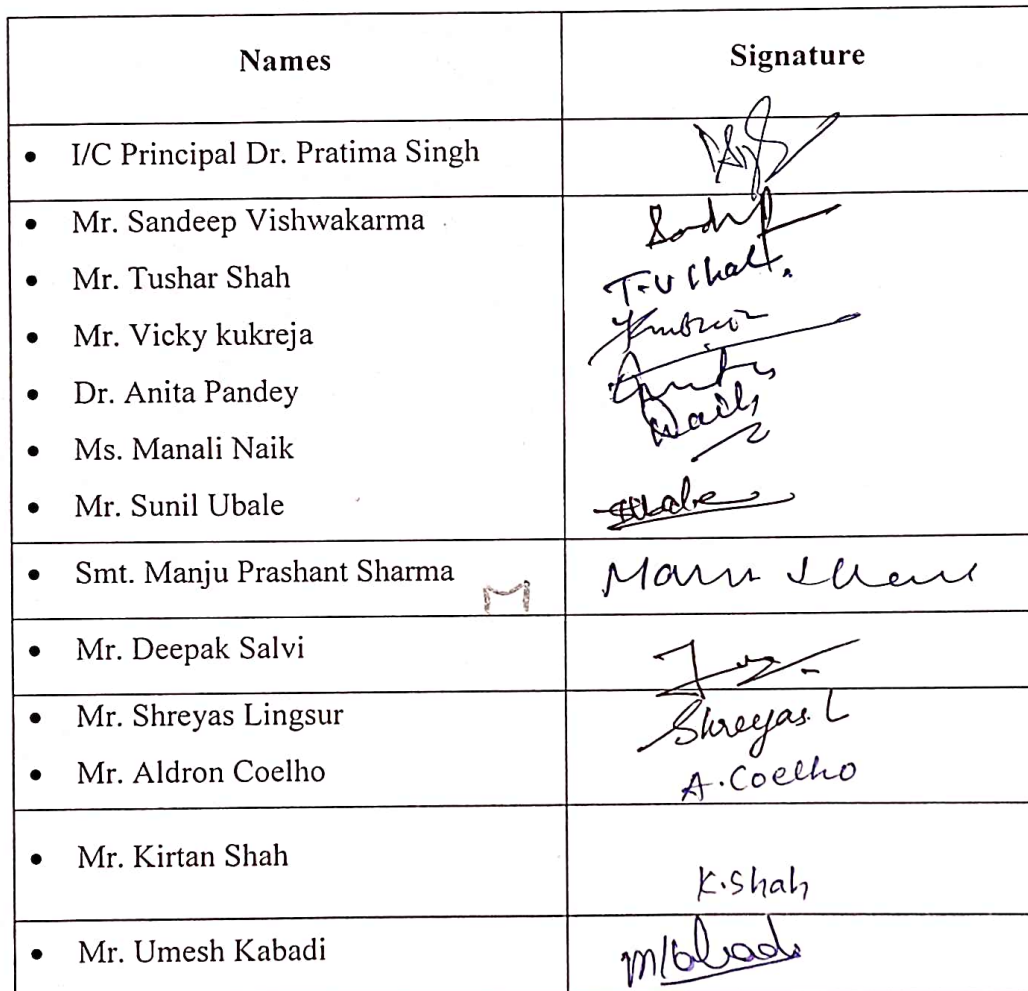 Names Signature
• I/C Principal Dr. Pratima Singh
• Mr. Sandeep Vishwakarma
• Mr. Tushar Shah T.U Shah.
• Mr. Vicky kukreja
• Dr. Anita Pandey
• Ms. Manali Naik Naik
• Mr. Sunil Ubale SUbale
• Smt. Manju Prashant Sharma
• Mr. Deepak Salvi
• Mr. Shreyas Lingsur Shreyas. L
• Mr. Aldron Coelho A. Coelho
• Mr. Kirtan Shah K. Shah
• Mr. Umesh Kabadi